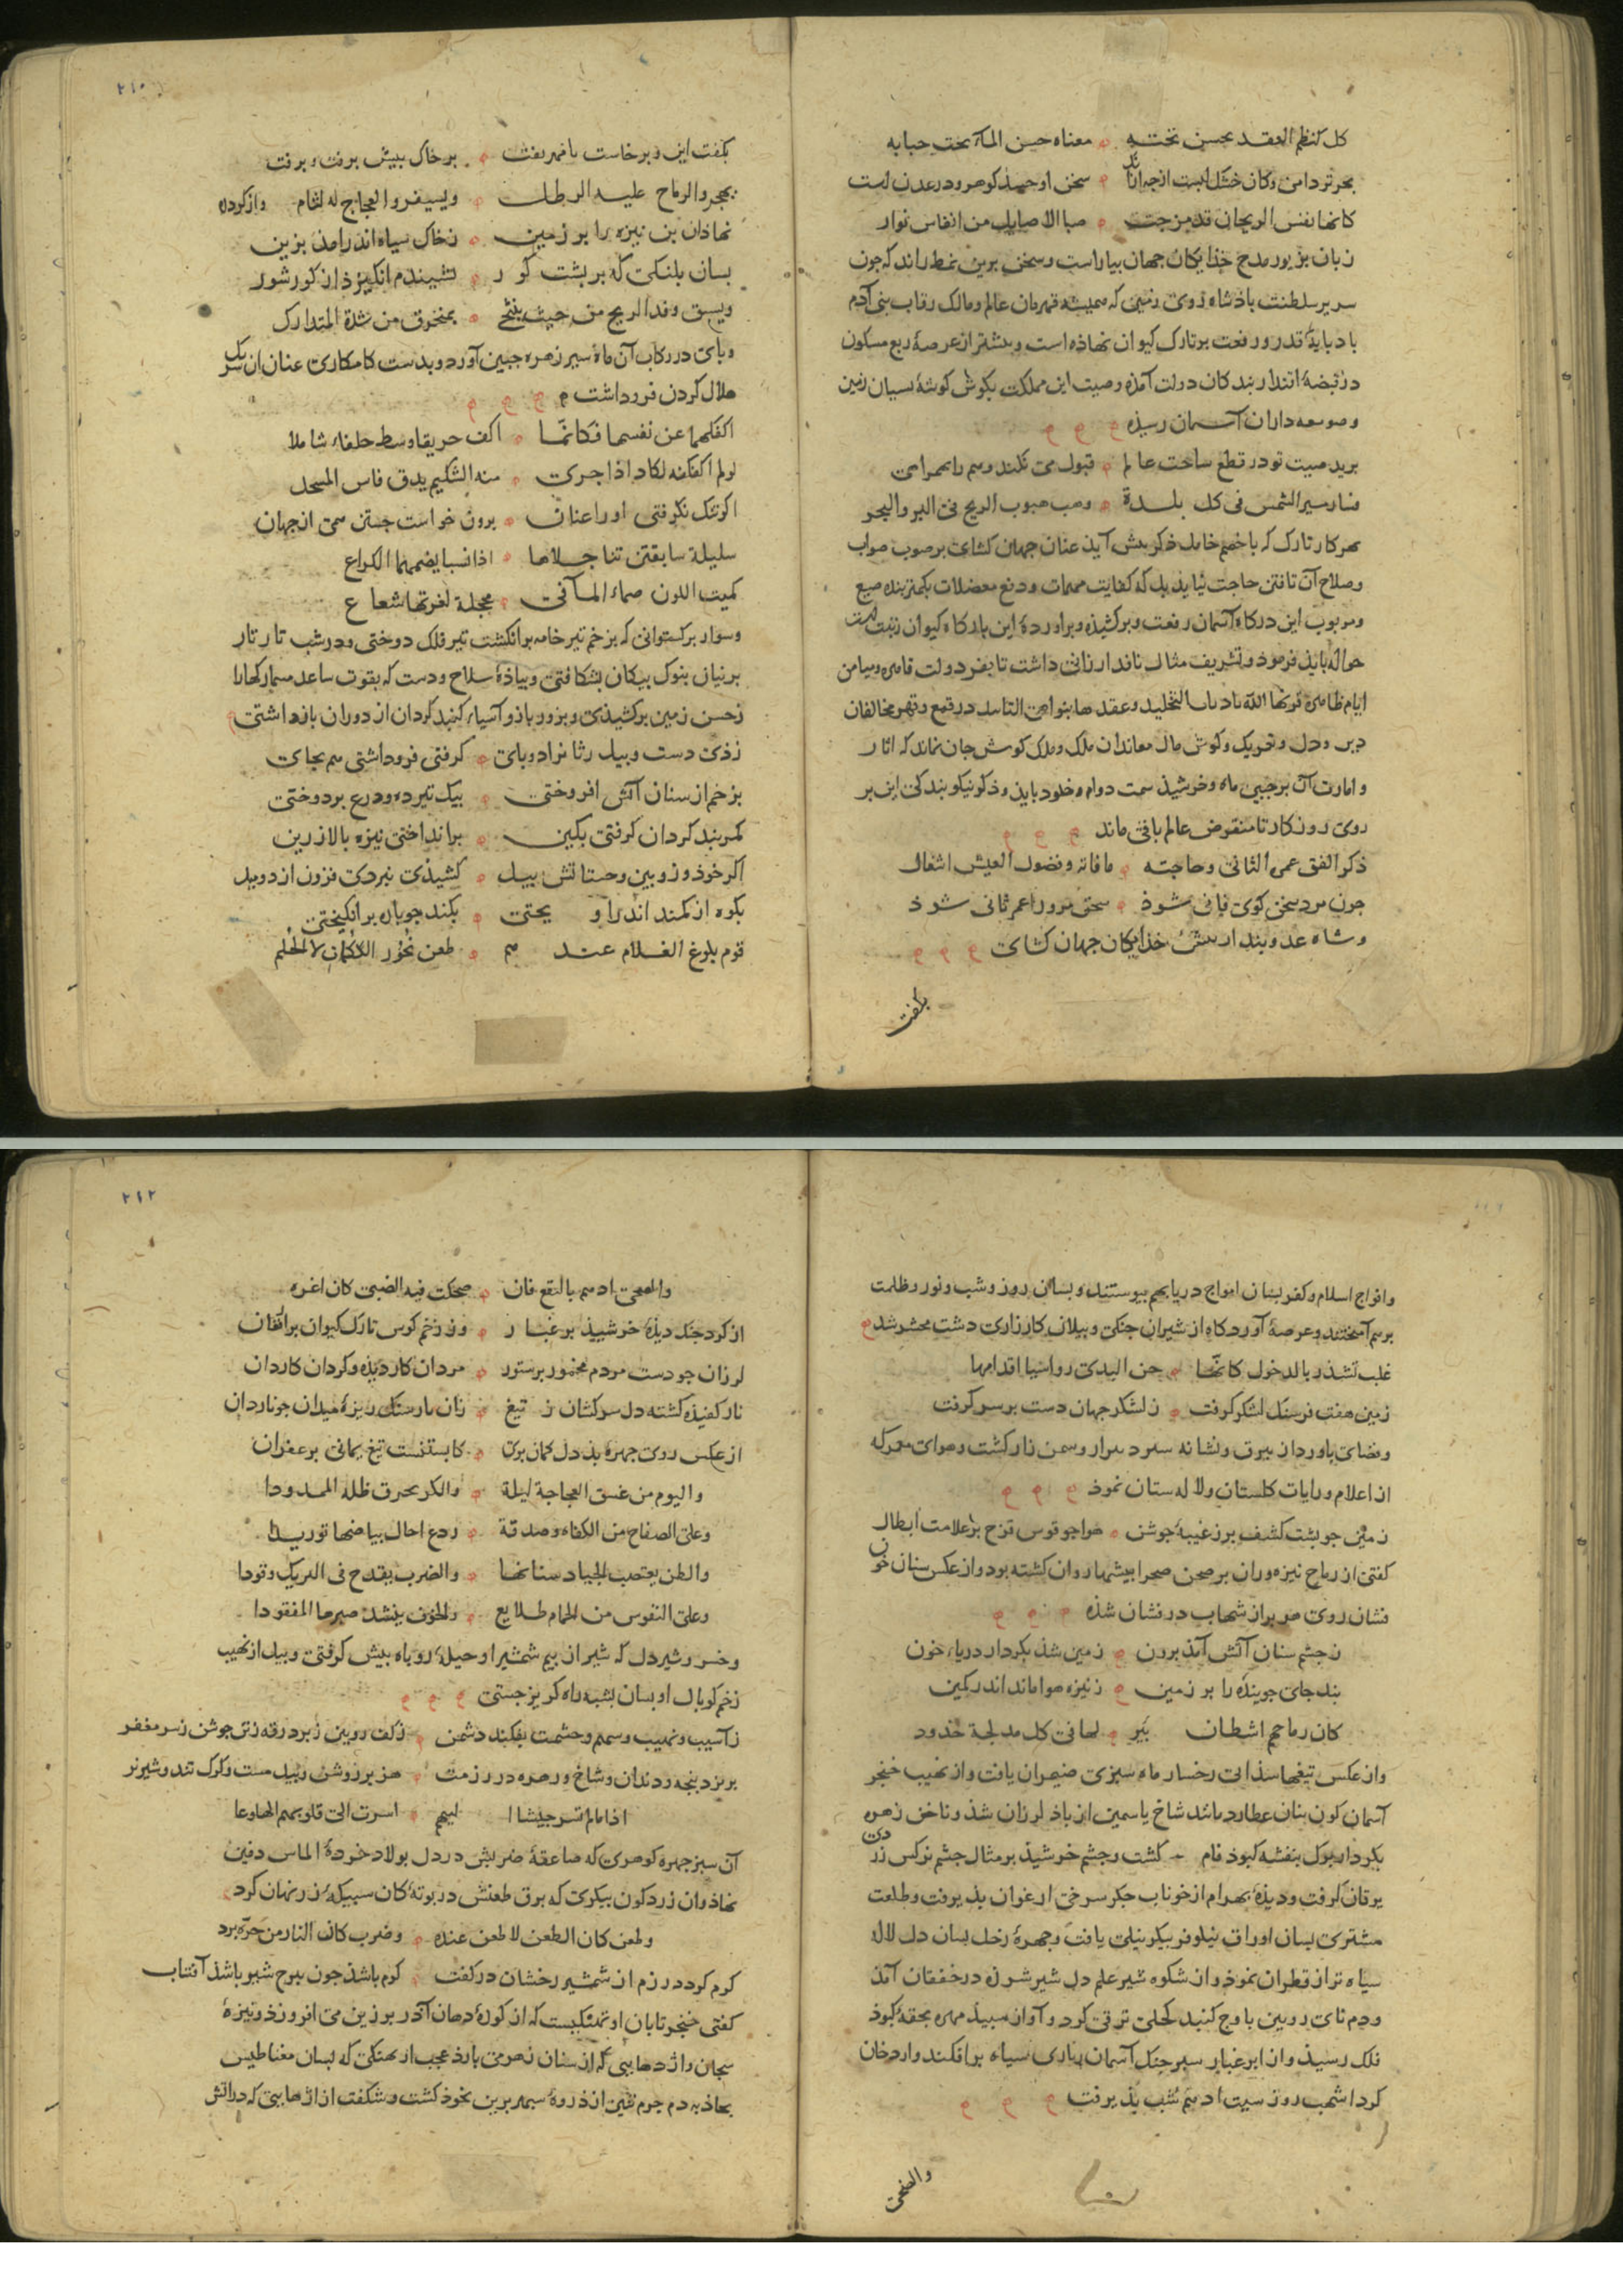 كل كنظم العقد يحسن تحته معناه حسن المآء تحت حبابه
بحر تر دامن وكان خشك لبست ازجه ازآنك سخن او جمله كوهر ودر عدن است
كانها بفس الريحان قد مزجت صبا الاصايل من انفاس نوار
زبان بزيور مدح خذايكان جهان بياراست وسخن برين نمط راند كه جون
سرير سلطنت باذشاه روى زمين كه هميشه قهرمان عالم ومالك رقاب بنى آدم
باد بايۀ قدر ورفعت بر تارك كيوان نهاذه است وبيشتر از عرصۀ ربع مسكون
در قبضۀ اقتدار بندكان دولت آمذه وصيت اين مملكت بكوش كوشۀ نسيان زمين
وصومعه داران آسمان رسيذه
بريد صيت تو در قطع ساحت عالم قبول مى نكند وهم را بهمراهى
فسار مسير الشمس فى كل بلدة وهب هبوب الريح فى البر والبحر
بهر كار تارك كه با خصم خامل ذكر بيش آيذ عنان جهان كشاى بر صوب صواب
وصلاح آن تافتن حاجت نيايذ بل كه كفايت مهمات ودفع معضلات بكمتر بنده صنع
ومربوب اين دركاه آسمان رفعت وبركشيذه وبراوردۀ اين باركاه كيوان رتبت
حواله بايذ فرموذ وتشريف مثال نافذ ارزانى داشت تا بفر دولت قاهره وميامن
ايام ظاهره قرنها الله تا دباب التخليد وعقدها بنواصى التابيد در قمع وقهر مخالفان
دين ودل وتحريك وكوش مال معاندان ملك وملك كوش جان نماند كه اثار
وامارت آن بر جبين ماه وخرشيذ سمت دوام وخلود يابذ وذكر نيكو بندكى اين بر
روى روزكار تا منقرض عالم باقى ماند
ذكر الفتى عمره الثانى وحاجته ما فاته وفضول العيش اشغال
جون مرد سخن كوى فانى شوذ سخن مرورا عمر ثانى شوذ
وشاه عدو بند از بيش خذايكان جهان كشاى
بكفت
٢١٠
بكفت اين وبرخاست بافهر بفت بر خاك بيش برفت وبرفت
يهجر والرماح عليه الرطلت ويسفر والعجاج له لثام وازكرده
نهاذان بن نيزه را بر زمين زخاك سياه اندر امذ بزين
بسان بلنكى كه بر بشت كور نشيندم انكيزذ از كور شور
ويسبق وفد الريح من حيث ينتحى بمنخرق من شدة المتدارك
وباى در ركاب آن ماه سير زهره جبين آورد وبدست كامكارى عنان ان سرك
هلال كردن فروداشت
اكفكفها عن نفسها فكانما اكف حريقا وسط حلفاء شاملا
لو لم اكفكفه لكاد اذا جرى منه الشكيم يدق فاس المسحل
اكر تنك نكرفتى اورا عنان برون خواست جستن همى از جهان
سليلة سابقتن تناجلاها اذا نسبا يضمهما الكراع
كميت اللون صماء المآقى محجلة لغرتها شعاع
وسوار بركستوانى كه بزخم تير خامه برانكشت تير فلك دوختى ودر شب تار تار
برنيان بنوك بيكان بشكافتى وبياذۀ سلاح ودست كه بقوت ساعد مسمار كهارا
زحسن زمين بركشيذى وبزور بازو آسياء كنبد كردان از دوران بازداشتى
زذى دست وبيل رثا نراد وباى كرفتى فروداشتى هم بجاى
بزخم از سنان آتش افروختى بيك تير ده ودرع بردوختى
كمربند كردان كرفتى بكين برانداختى نيزه بالا ز زين
اكر خوذ وزوبين وحستا لش بيل كشيذى نبردى فزون از دو بيل
بكوه از كمند اندر آويختى بكند جوباره برانكيختى
قوم بلوغ الغلام عندهم طعن نحور الكماة لا الحلم
وافواج اسلام وكفر بسان امواج دريا بهم بيوستند وبسان روز وشب ونور وظلمت
برهم آمختند وعرصۀ آوردكاه از شيران جنكى وبيلان كارزارى دشت محشر شد
غلب تشذر بالدخول كانها جن البدى رواسيا اقدامها
زمين هفت فرسنك لشكر كرفت ز لشكر جهان دست بر سر كرفت
وفضاى باورد از بيرق ونشانه سرو وسمن زار كشت وهواى معركه
از اعلام ورايات كلستان ولاله ستان نموذ
زمين جو بشت كشف بر زغيبۀ جوشن هوا جو قوس قزح بر علامت ابطال
كفتى از رماح نيزه وران بر صحن صحرا بيشها روان كشته بود واز عكس سنان خون
فشان روى هوا بر از شهاب درفشان شذه
زجشم سنان آتش آمذ برون زمين شذ بكردار درياء خون
بند جاى جوينده را بر زمين زنيزه هوا ماند اندر كمين
كان رماحهم اشطان بير لها فى كل مدلجة خدود
واز عكس تيغها سذابى رخسار ماه سبزى ضيمران يافت واز نهيب خنجر
آسمان كون بنان عطارد مانند شاخ ياسمين از باذ لرزان شذ وناخن زهره
بكردار بوك بنفشه كبوذ فام كشت وجشم خورشيذ بر مثال جشم نركس زردى
يرقان كرفت وديذۀ بهرام از خوناب جكر سرخى ارغوان بذيرفت وطلعت
مشترى بسان اوراق نيلوفر بيكر نيلى يافت وجهرۀ زحل بسان دل لاله
سياه تر از قطران نموذ واز شكوه شير علم دل شير شرزه در خفقان آمذ
ودم ناى رويين باوج كنبد كحلى ترقى كرد وآواز سبيذ مهره بحقۀ كبوذ
فلك رسيذ واز ابر غبار سبر جنك آسمان رداى سياه برافكند واز دخان
كرد اشهب روز سيت ادهم شب بذيرفت
والضحى
٢١٢
والضحى ادهم بالنقع فان ضحكت فيه الضبى كان اغره
از كرد جنك ديذۀ خرشيذ بر غبار وز زخم كوس تارك كيوان برافغان
لرزان جو دست مردم مخمور بر ستور مردان كارديذه وكردان كاردان
نار كفيذه كشته دل سركشان ز تيغ زان مار سنك ريزۀ ميدان جو ناردان
از عكس روى جهرۀ بد دل كمان برى كابستنست تيغ يمانى بزعفران
واليوم من غسق العجاجة ليلة والكر يخرق ظله الممدودا
وعلى الصفاح من الكفاه وصدقة ردع احال بياضها توريدا
والطن يعتصب الجياد سنانها والضرب يقدح فى التريك وقودا
وعلى النفوس من الحمام طلايع والخوف ينشد صبرها المفقودا
وخسرو شير دل كه شير از بيم شمشير او حيلۀ روباه بيش كرفتى وبيل از نهيب
زخم كوبال او بسان بشه راه كريز جستى
ز آسيب ونهيب وسهم وحشمت بفكند دشمن زكف زوبين زبر درقه زتن جوشن زسر مغفر
بريزد بنجه ودندان وشاخ وزهره در رزمت هزبر زوشن وبيل مست وكرك تند وشير نر
اذا ما لم تسر جيشا اليهم اسرت الى قلوبهم الهلوعا
آن سبز جهره كوهرى كه صاعقۀ ضربش در دل بولاد خردۀ الماس دفين
نهاذ وان زرد كون بيكرى كه برق طعنش در بوتۀ كان سبيكۀ زر نهان كرد
ولطعن كان الطعن لا طعن عنده وضرب كان النار من حره برد
كرم كردد رزم از شمشير رخشان در كفت كرم باشذ جون ببرج شير باشذ آفتاب
كفتى خنجر تابان او تمثكيست كه از كورۀ دهان آذر برزين مى افروزذ ونيزۀ
بيجان واژدهايى كه از سنان زهر مى بارذ عجب از نهنكى كه بسان مغناطيس
بجاذبه دم جرم تنين از ذروۀ سبهر برين بخوذ كشت وشكفت از اژدهايى كه در آتش